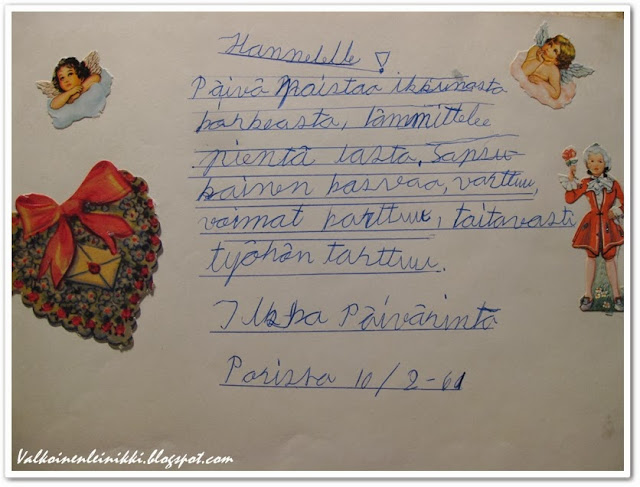 Hannelelle !
Päivä paistaa ikkunasta
korkeasta, lämmittelee
pientä lasta. Lapsu-
kainen kasvaa, varttuu,
voimat karttuu, taitavasti
työhön tarttuu.
Ilkka Päivärinta
Porista 10/2-61
Valkoinenleinikki.blogspot.com